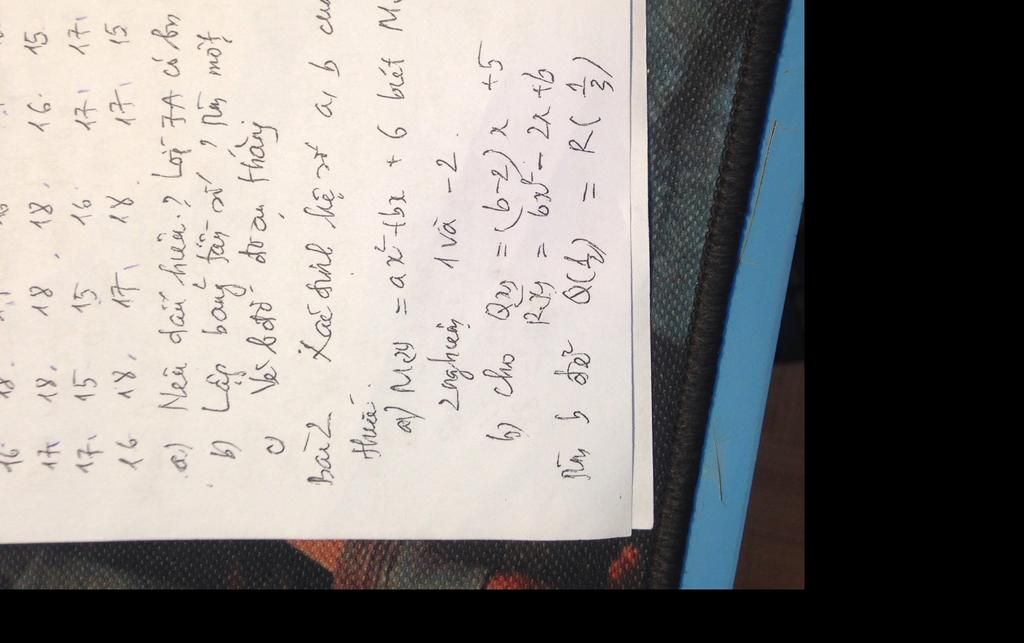 16. 18.
17. 18. 18. 18. 16. 15.
17. 15 15 16. 17. 17.
16 18. 17. 18 17. 15
a) Nêu dấu hiệu? Lớp 7A có bn
b) Lập bảng tần số, tìm mốt
c Vẽ bđồ đoạn thẳng
Bài 2 Xác định hệ số a, b
thức.
a) M(x) = ax² + bx + 6 biết M
2 nghiệm 1 và -2.
b) cho Q(x) = (b-2)x + 5
R(x) = bx² - 2x + b
Tìm b để Q(1/2) = R(1/3)